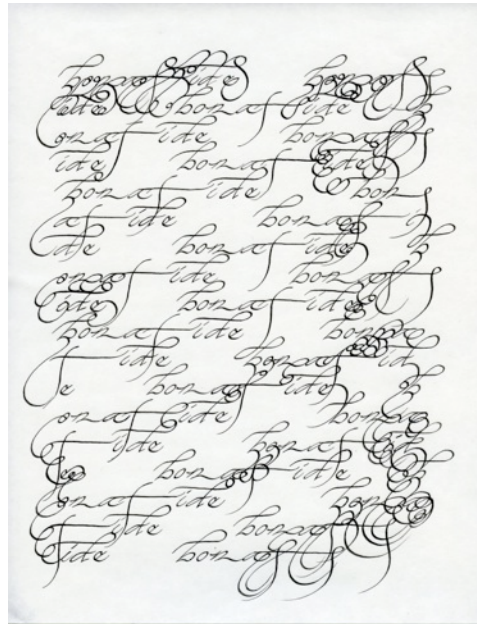 bona fide bona f
ide bona fide b
ona fide bona f
ide bona fide
bona fide bon
a fide bona fi
de bona fide b
ona fide bona f
ide bona fide
bona fide bona
fide bona fid
e bona fide b
ona fide bona
fide bona fi
de bona fide
ona fide bona
fide bona f
ide bona f